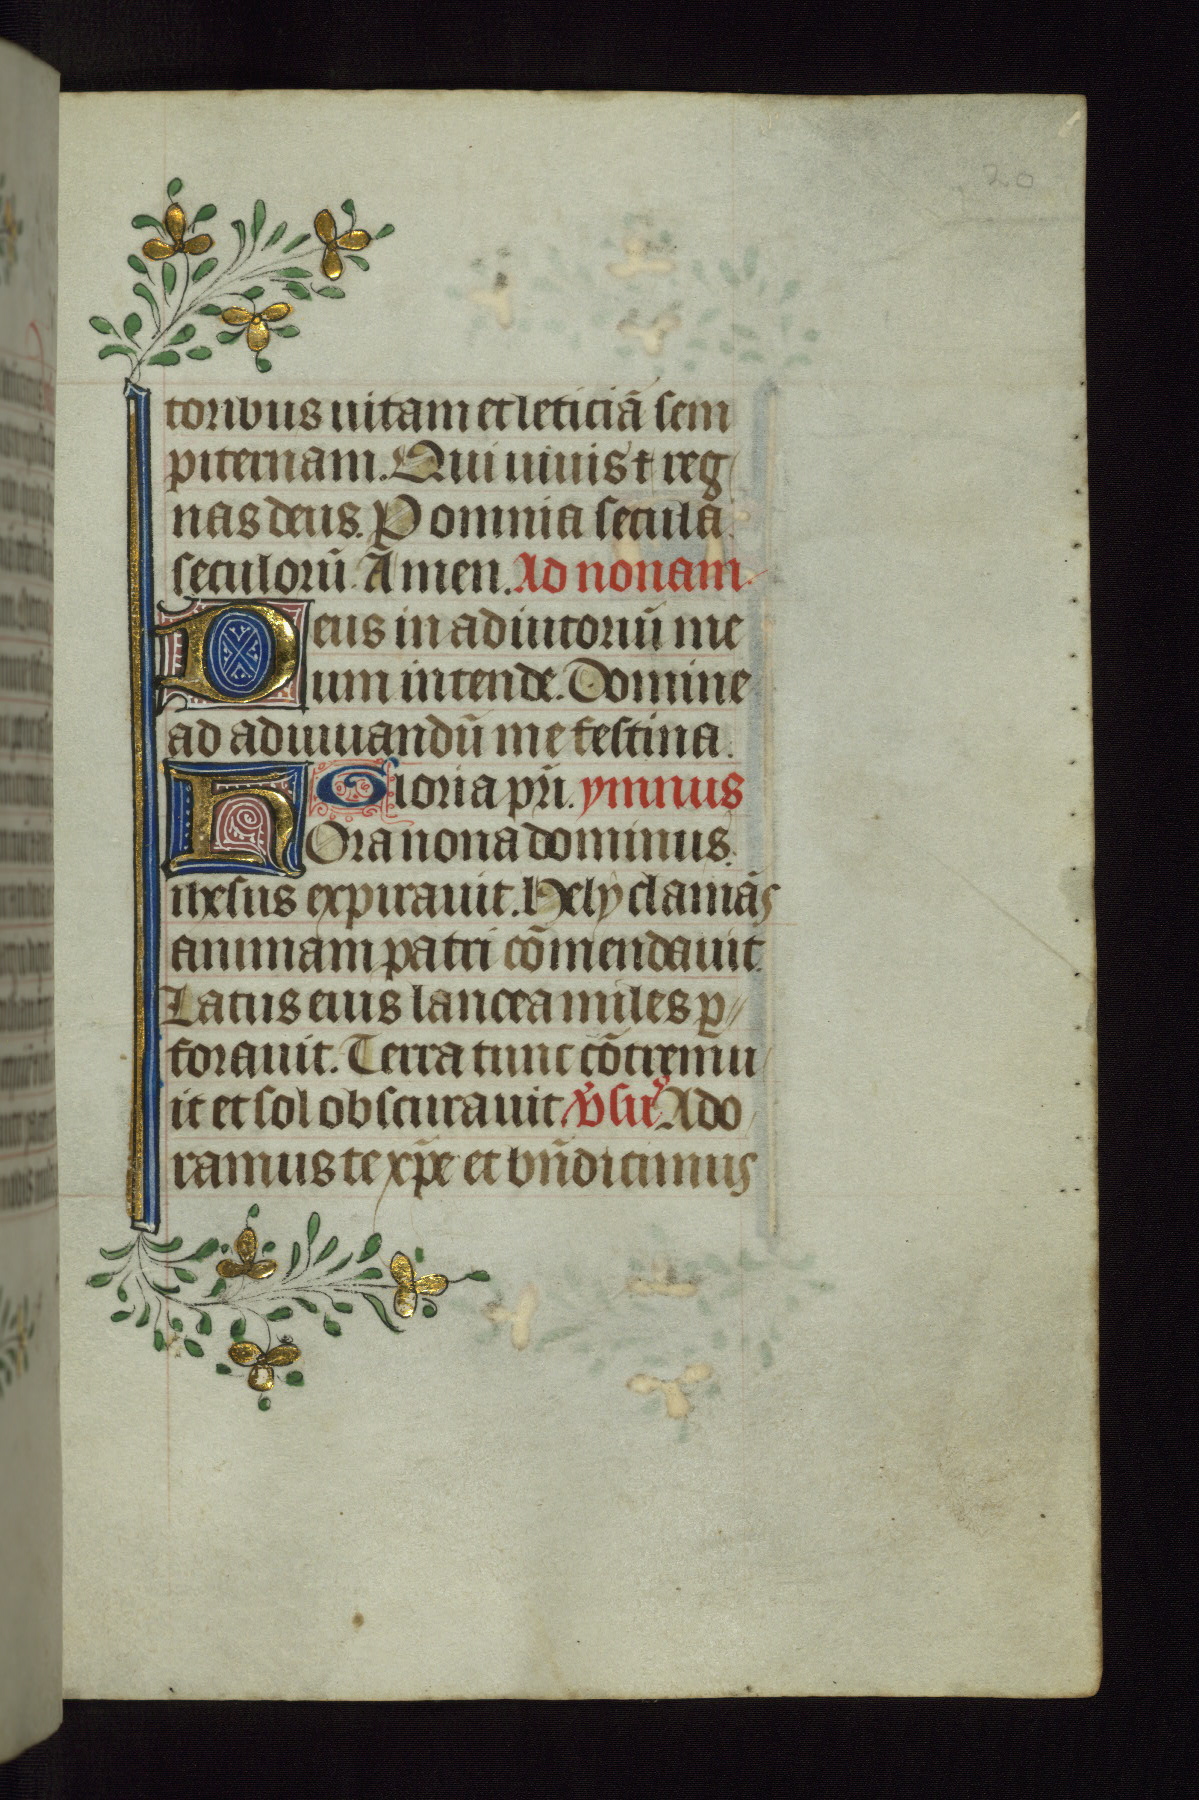 20
toribus uitam et leticiā sem
piternam. Qui uiuis ⁊ reg
nas deus. P omnia secula
seculorū. Āmen. Ad nonam
Deus in adiutoriū me
um intende. Domine
ad adiuuandū me festina.
Gloria pr̄i. ymnus
Hora nona dominus
ihesus expirauit. Hely clamās
animam patri cōmendauit
Latus eius lancea miles ꝑ
forauit. Terra tunc cōtremu
it et sol obscurauit Ado
ramus te xp̄e et bn̄dicimus